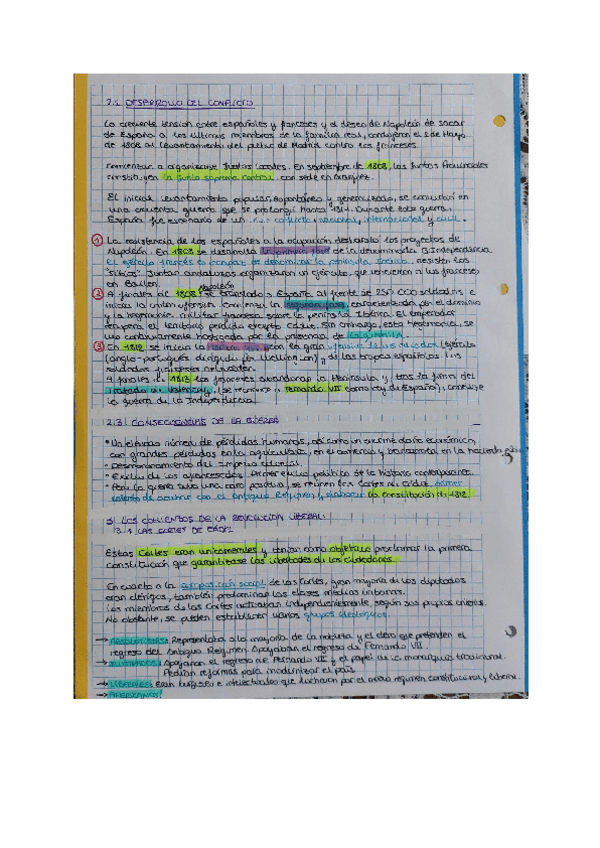 2.2 DESARROLLO DEL CONFLICTO
La creciente tensión entre españoles y franceses y el deseo de Napoleón de sacar
de España a los últimos miembros de la familia real, condujeron el 2 de Mayo
de 1808 al levantamiento del pueblo de Madrid contra los franceses.
comienzan a organizarse Juntas Locales. En septiembre de 1808, las Juntas Provinciales
constituyen la Junta Suprema Central con sede en Aranjuez.
El inicial levantamiento popular, espontáneo y generalizado, se convirtió en
una cruenta guerra que se prolongó hasta 1814. Durante esta guerra
España fue escenario de un conflicto: nacional, internacional y civil.
① La resistencia de los españoles a la ocupación desbarató los proyectos de
Napoleón. En 1808 se desarrolla la primera fase de la denominada G. Independencia.
El ejército francés es incapaz de dominar la península Ibérica, resisten los
"sitios". Juntas andaluzas organizaron un ejército, que vencieron a los franceses
en Bailén.
② A finales de 1808 Napoleón se trasladó a España al frente de 250 000 soldados e
inicia la contraofensiva. Comienza la segunda fase, caracterizada por el dominio
y la hegemonía militar francesa sobre la península Ibérica. El emperador
recupera el territorio perdido excepto Cádiz. Sin embargo, esta hegemonía, se
vio continuamente por la presencia de guerrilla.
③ En 1812 se inicia la tercera fase, con la gran (ejército
(anglo-portugués dirigido por Wellington), y de las tropas españolas. Los
soldados franceses retroceden.
A finales de 1813 los franceses abandonan la Península y, tras la firma del
Tratado de Valençay, (se reconoce a Fernando VII como rey de España), concluye
la guerra de la Independencia.
2.3 CONSECUENCIAS DE LA GUERRA
• Un elevado número de pérdidas humanas, así como un enorme daño económico,
con grandes pérdidas en la agricultura, en el comercio y transporte, en la hacienda
• Desmoronamiento del Imperio colonial.
• Exilio de los afrancesados. Primer exilio político de la historia contemporánea.
• Pero la guerra tuvo una cara positiva, se reúnen las Cortes de Cádiz, primer
intento de acabar con el Antiguo Régimen y elaborar la constitución de 1812.
3) LOS COMIENZOS DE LA REVOLUCIÓN LIBERAL:
3.1 LAS CORTES DE CÁDIZ
Estas Cortes eran unicamerales y tenían como objetivo proclamar la primera
constitución que garantizase las libertades de los ciudadanos.
En cuanto a la composición social de las Cortes, gran mayoría de los diputados
eran clérigos, también predominan las clases medias urbanas.
Los miembros de las Cortes actuaban independientemente según sus propios criterios.
No obstante, se pueden establecer varios grupos ideológicos:
→ ABSOLUTISTAS: Representaba a la mayoría de la nobleza y el clero que pretenden el
regreso del Antiguo Régimen. Apoyaban el regreso de Fernando VII.
→ ILUSTRADOS: Apoyaron el regreso de Fernando VII y el papel de la monarquía tradicional.
Pedían reformas para modernizar el país
→ LIBERALES: Eran burgueses e intelectuales que lucharon por el nuevo régimen constitucional y liberal.
→ AMERICANOS: